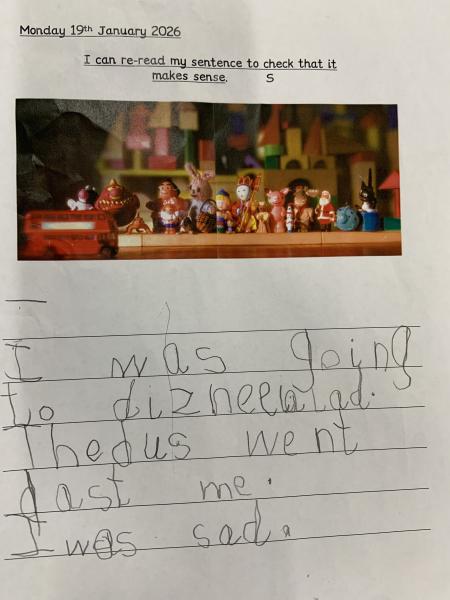 Monday 19th January 2026
I can re-read my sentence to check that it
makes sense. S
I was going
to dizneewlad.
Thebus went
past me.
I was sad.